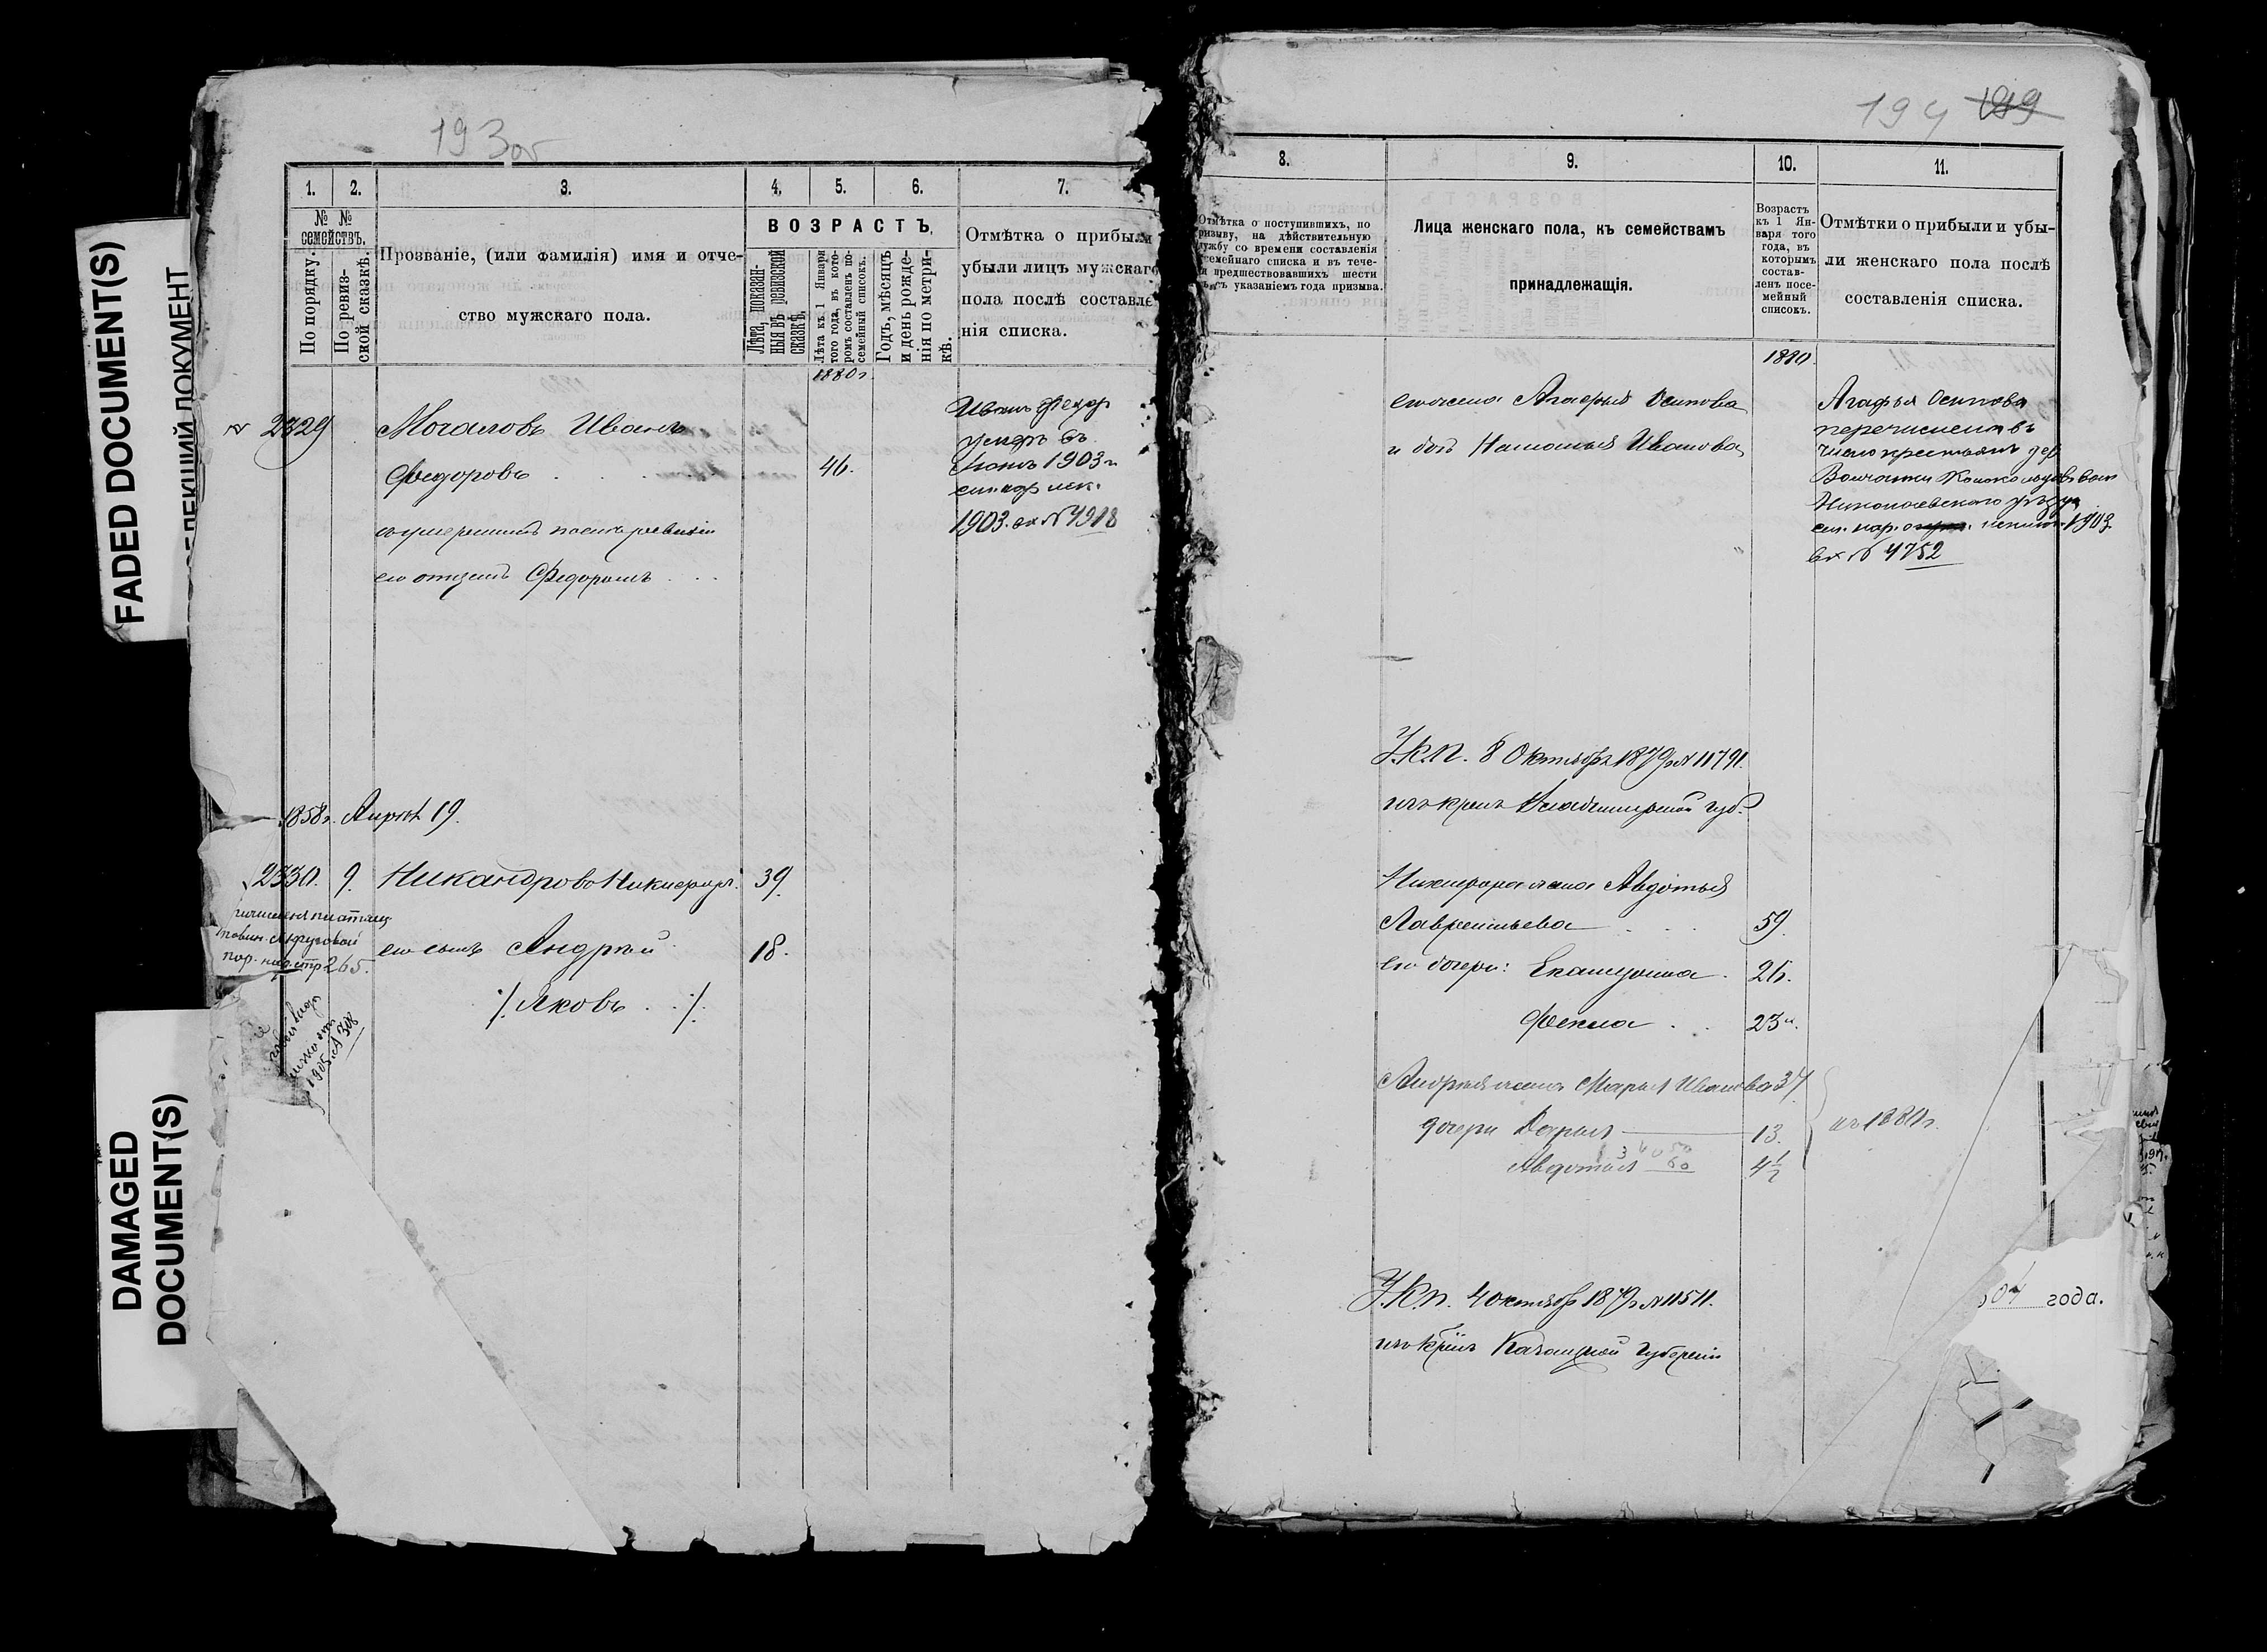 FADED DOCUMENT(S)
DAMAGED
DOCUMENT(S)
193 об
1.
2.
3.
4.
5.
6.
7.
№ №
семействъ.
По порядку.
По ревиз-
ской сказкѣ.
Прозваніе, (или фамилія) имя и отче-
ство мужскаго пола.
ВОЗРАСТЪ.
Лѣта, показан-
ныя въ ревизской
сказкѣ.
Лѣта къ 1 Января
того года, въ кото-
ромъ составленъ по-
семейный списокъ.
Годъ, мѣсяцъ
и день рожде-
нія по метри-
кѣ.
Отмѣтка о прибыли
убыли лицъ мужскаго
пола послѣ составле
нія списка.
1880 г.
№ 2329
Мочаловъ Иванъ
Федоровъ
46.
съ умершимъ послѣ ревизіи
его отцемъ Федоромъ
Иванъ Федор
умеръ въ
1903 г.
1903. вх № 4918
1858 г. Апрѣл 19.
2330. 9. Никандровъ Никифоръ. 39.
его сынъ Андрей 18.
Яковъ
стр 265.
1905 № 308
194 199
8.
9.
10.
11.
Отмѣтка о поступившихъ, по
ризыву, на дѣйствительную
лужбу со времени составленія
семейнаго списка и въ тече-
и предшествовавшихъ шести
съ указаніемъ года призыва.
Лица женскаго пола, къ семействамъ
принадлежащія.
Возрастъ
къ 1 Ян-
варя того
года, въ
которымъ
состав-
ленъ посе-
мейный
списокъ.
Отмѣтки о прибыли и убы-
ли женскаго пола послѣ
составленія списка.
1880
его жена Агафья Осипова
и доч Наталья Иванова
Агафья Осипова
перечислена въ
число крестьянъ дер
Волчанки вол
Николаевскаго уѣзда
1903
вх № 4752
У.К.П. 8 Октября 1879 г № 11791.
изъ крест Владимирской губ.
Никифора жена Авдотья
Лаврентьева 59.
его дочери: Екатерина 26.
Фекла 23
Андрея жена Марья Иванова 37
дочери Дарья 13.
Авдотья 4½
къ 1880 г.
У.К.П. 4 октября 1879 г № 11511.
изъ крест Казанской губерніи
04 года.